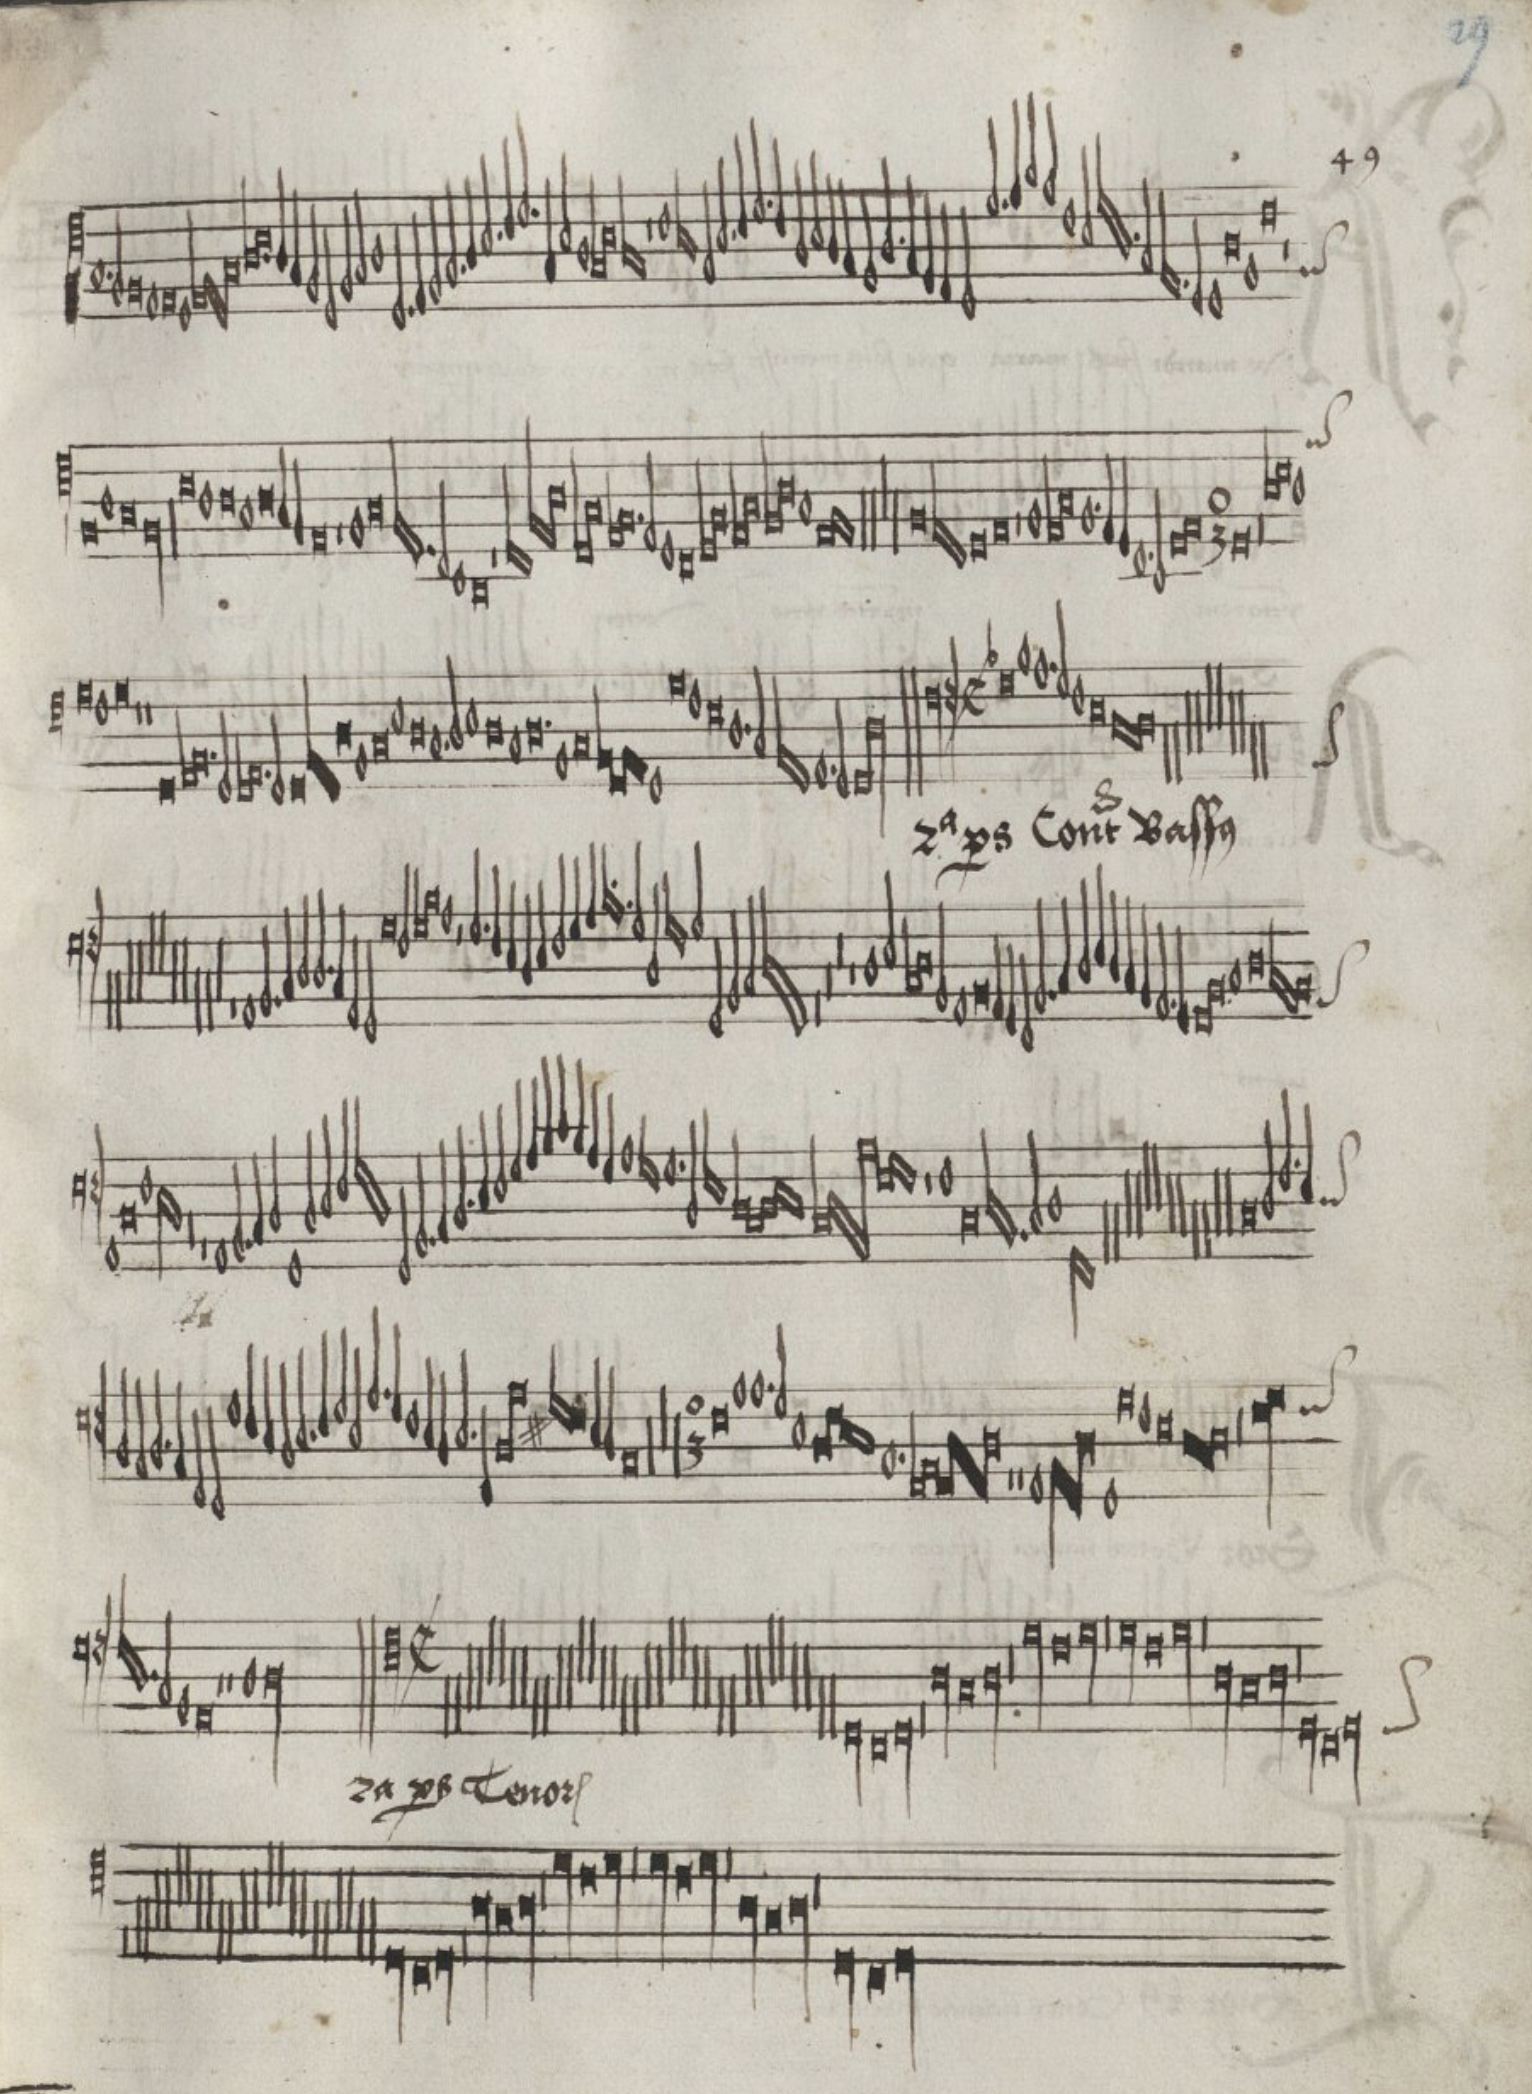 29
49
2a ps Cont Bassus
2a ps Tenor